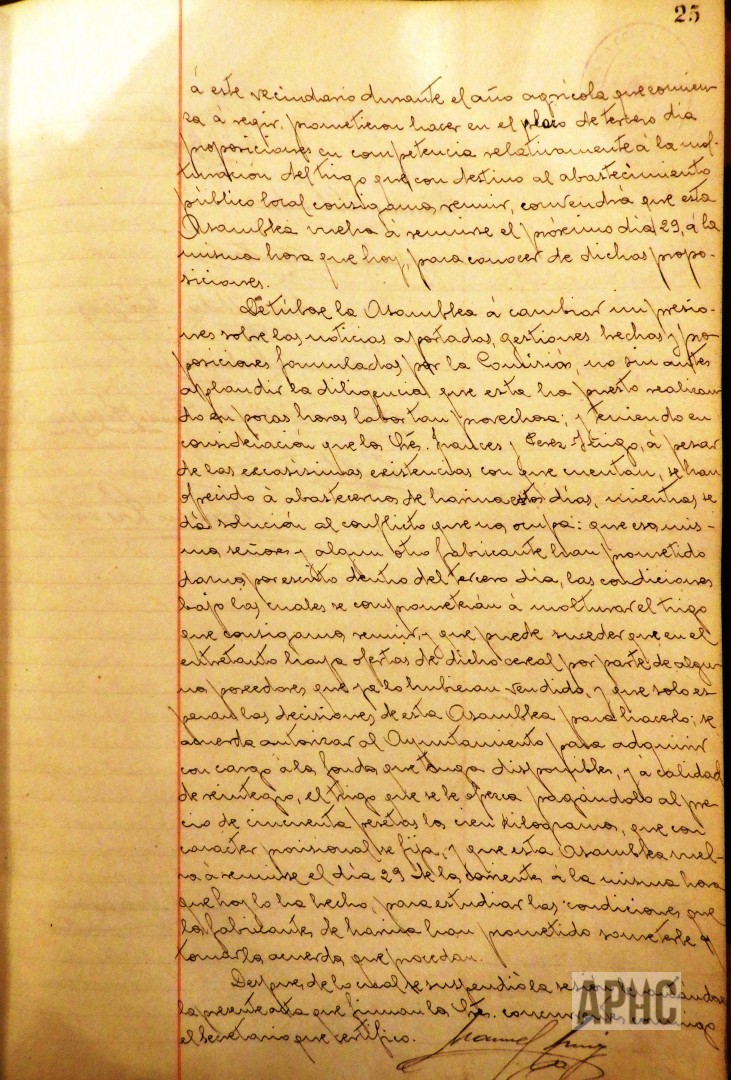 25
á este vecindario durante el año agrícola que comien-
za á regir, prometieron hacer en el plazo de tercero dia
proposiciones en competencia relativamente á la mol-
turacion del trigo que, con destino al abastecimiento
público local consigamos reunir, convendrá que esta
Asamblea vuelva á reunirse el próximo dia 29, á la
misma hora que hoy, para conocer de dichas propo-
siciones.
Detúbose la Asamblea á cambiar impresio-
nes sobre las noticias aportadas, gestiones hechas y pro-
posiciones formuladas por la Comisión, no sin antes
applaudir la diligencia que esta ha puesto realizan-
do en pocas horas labor tan provechosa; y teniendo en
consideración que los Sres. Frances y Perez Iñigo, á pesar
de las escasisimas existencias con que cuentan, se han
ofrecido á abastecernos de harina estos días, mientras se
dá solución al conflicto que nos ocupa: que esos mis-
mos señores y algun otro fabricante han prometido
darnos por escrito dentro del tercero dia, las condiciones
bajo las cuales se comprometerán á molturar el trigo
que consigamos reunir, y que puede suceder que en el
entretanto haya ofertas de dicho cereal por parte de algu-
nos poseedores que ya lo hubieran vendido, y que solo es-
peran las decisiones de esta Asamblea para hacerlo; se
acuerda autorizar al Ayuntamiento para adquirir
con cargo á los fondos que tenga disponibles, y á calidad
de reintegro, el trigo que se le ofrezca pagándolo al pre-
cio de cincuenta pesetas los cien kilogramos, que con
caracter provisional se fija, y que esta Asamblea vuel-
va á reunirse el día 29 de los corrientes á la misma hora
que hoy lo ha hecho, para estudiar las condiciones que
los fabricantes de harina han prometido someterle y
tomar los acuerdos que procedan.
Despues de lo cual se suspendió la sesión
la presente acta que firman los Sres. concurrentes conmigo
el secretario que certifico.
Manuel
APHC